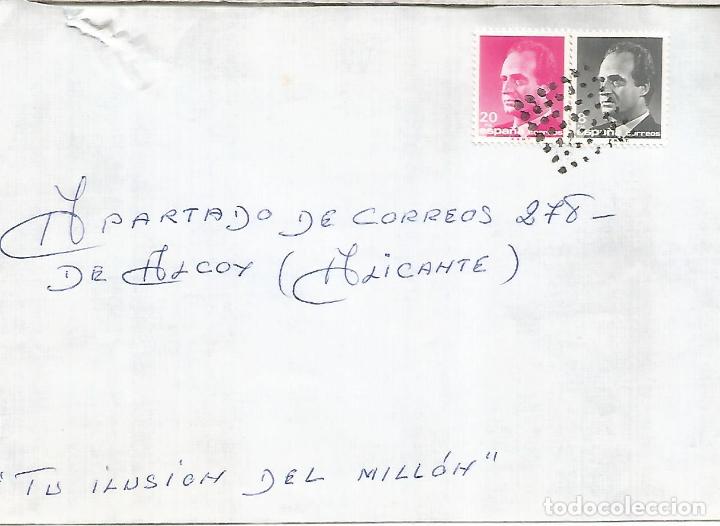 20 8
españa correos españa correos
APARTADO DE CORREOS 278-
DE ALCOY (ALICANTE)
"TU ILUSION DEL MILLÓN"
todocoleccion